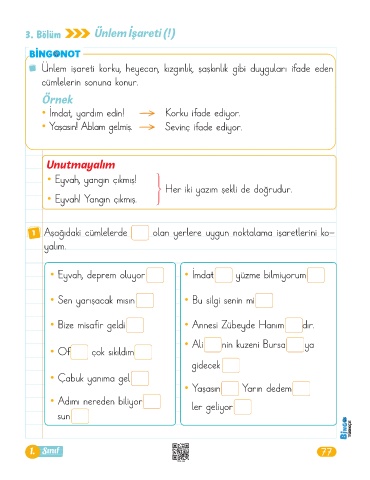 3. Bölüm Ünlem İşareti (!)
BİNGONOT
Ünlem işareti korku, heyecan, kızgınlık, şaşkınlık gibi duyguları ifade eden
cümlelerin sonuna konur.
Örnek
• İmdat, yardım edin! → Korku ifade ediyor.
• Yaşasın! Ablam gelmiş. → Sevinç ifade ediyor.
Unutmayalım
• Eyvah, yangın çıkmış!
• Eyvah! Yangın çıkmış.
Her iki yazım şekli de doğrudur.
1 Aşağıdaki cümlelerde olan yerlere uygun noktalama işaretlerini ko-
yalım.
• Eyvah, deprem oluyor
• Sen yarışacak mısın
• Bize misafir geldi
• Of çok sıkıldım
• Çabuk yanıma gel
• Adımı nereden biliyor
sun
• İmdat yüzme bilmiyorum
• Bu silgi senin mi
• Annesi Zübeyde Hanım dır.
• Ali nin kuzeni Bursa ya
gidecek
• Yaşasın Yarın dedem
ler geliyor
1. Sınıf
77
BİNGO